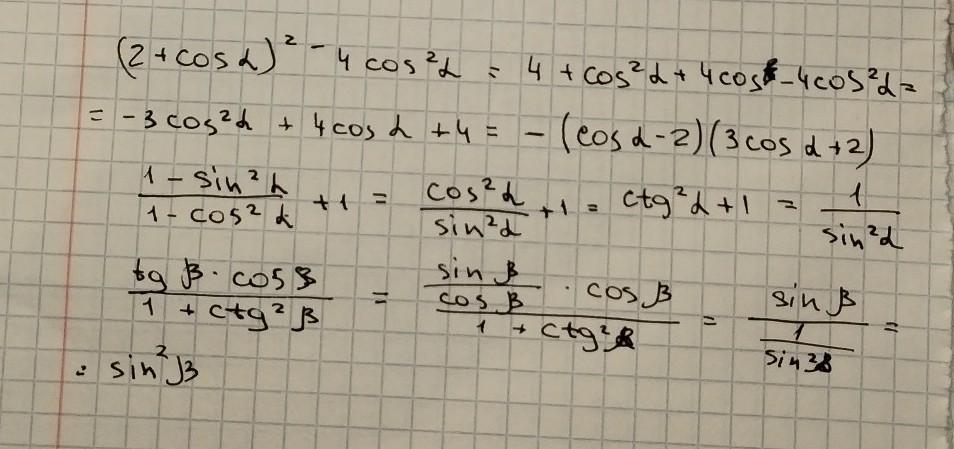 (2 + cos α)² - 4 cos²α = 4 + cos²α + 4cos - 4cos²α =
= -3 cos²α + 4 cos α + 4 = - (cos α - 2)(3 cos α + 2)
(1 - sin²α)/(1 - cos²α) + 1 = cos²α/sin²α + 1 = ctg²α + 1 = 1/sin²α
(tg β · cos β)/(1 + ctg²β) = (sin β/cos β · cos β)/(1 + ctg²) = sin β/(1/sin) =
= sin²β